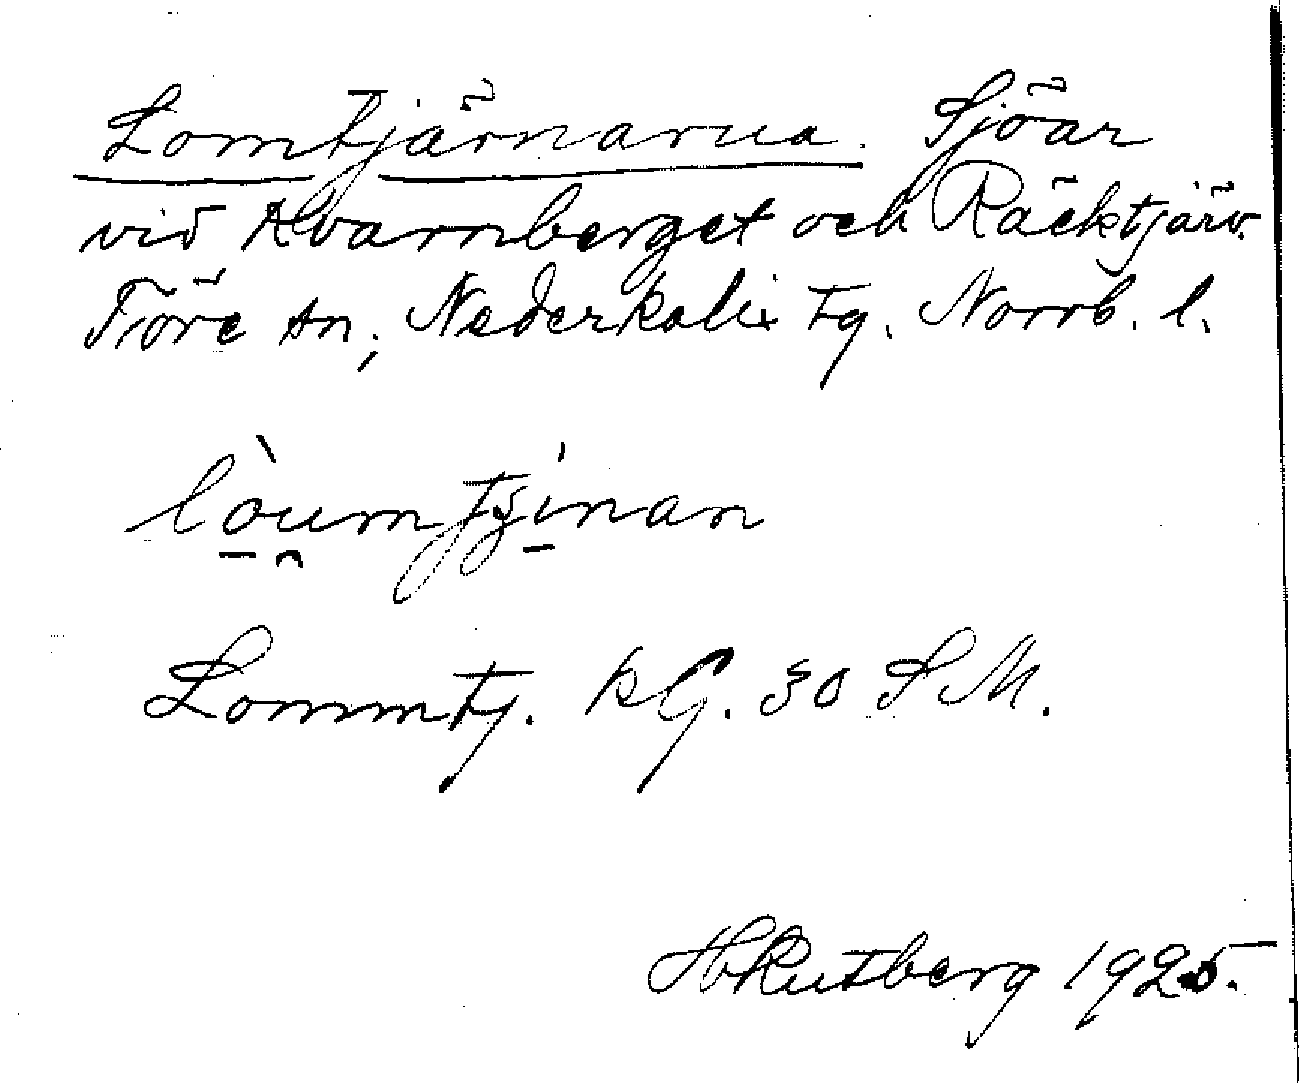 Lomtjärnarna. Sjöar
vid Kvarnberget och Räcktjärv.
Töre sn; Nederkalix tg. Norrb. l.
lòumtʃinan
Lommtj. kG. 30 S M.
H Rutberg 1925.